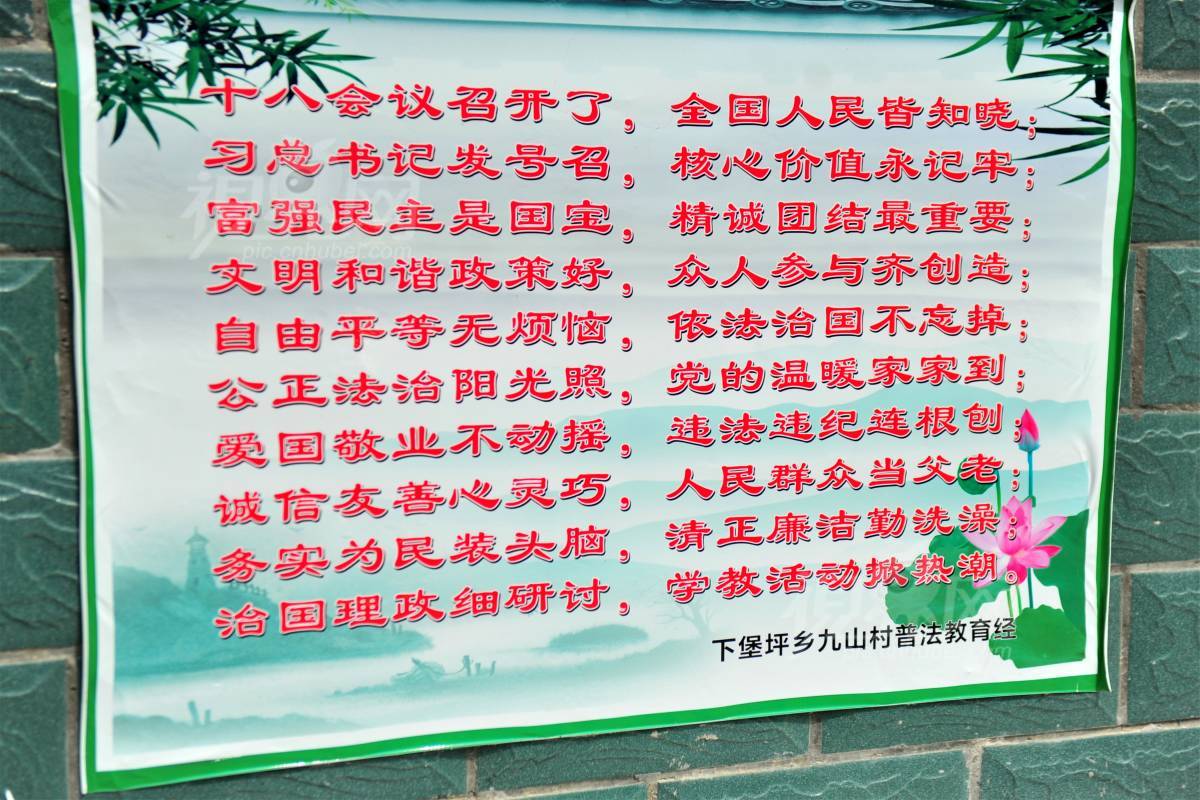 十八会议召开了，全国人民皆知晓；
习总书记发号召，核心价值永记牢；
富强民主是国宝，精诚团结最重要；
文明和谐政策好，众人参与齐创造；
自由平等无烦恼，依法治国不忘掉；
公正法治阳光照，党的温暖家家到；
爱国敬业不动摇，违法违纪连根刨；
诚信友善心灵巧，人民群众当父老；
务实为民装头脑，清正廉洁勤洗澡；
治国理政细研讨，学教活动掀热潮。
下堡坪乡九山村普法教育经
pic.cnhubei.com